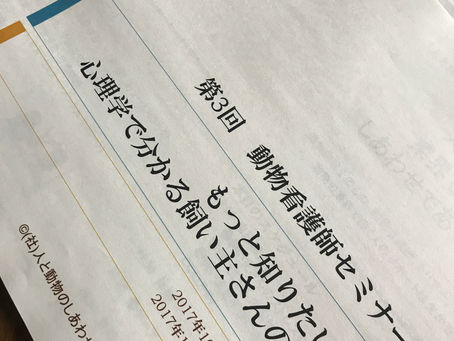 第3回 動物看護師セミナー
もっと知りたい
心理学で分かる飼い主さんの
2017年1
2017年1
©(社)人と動物のしあわせ